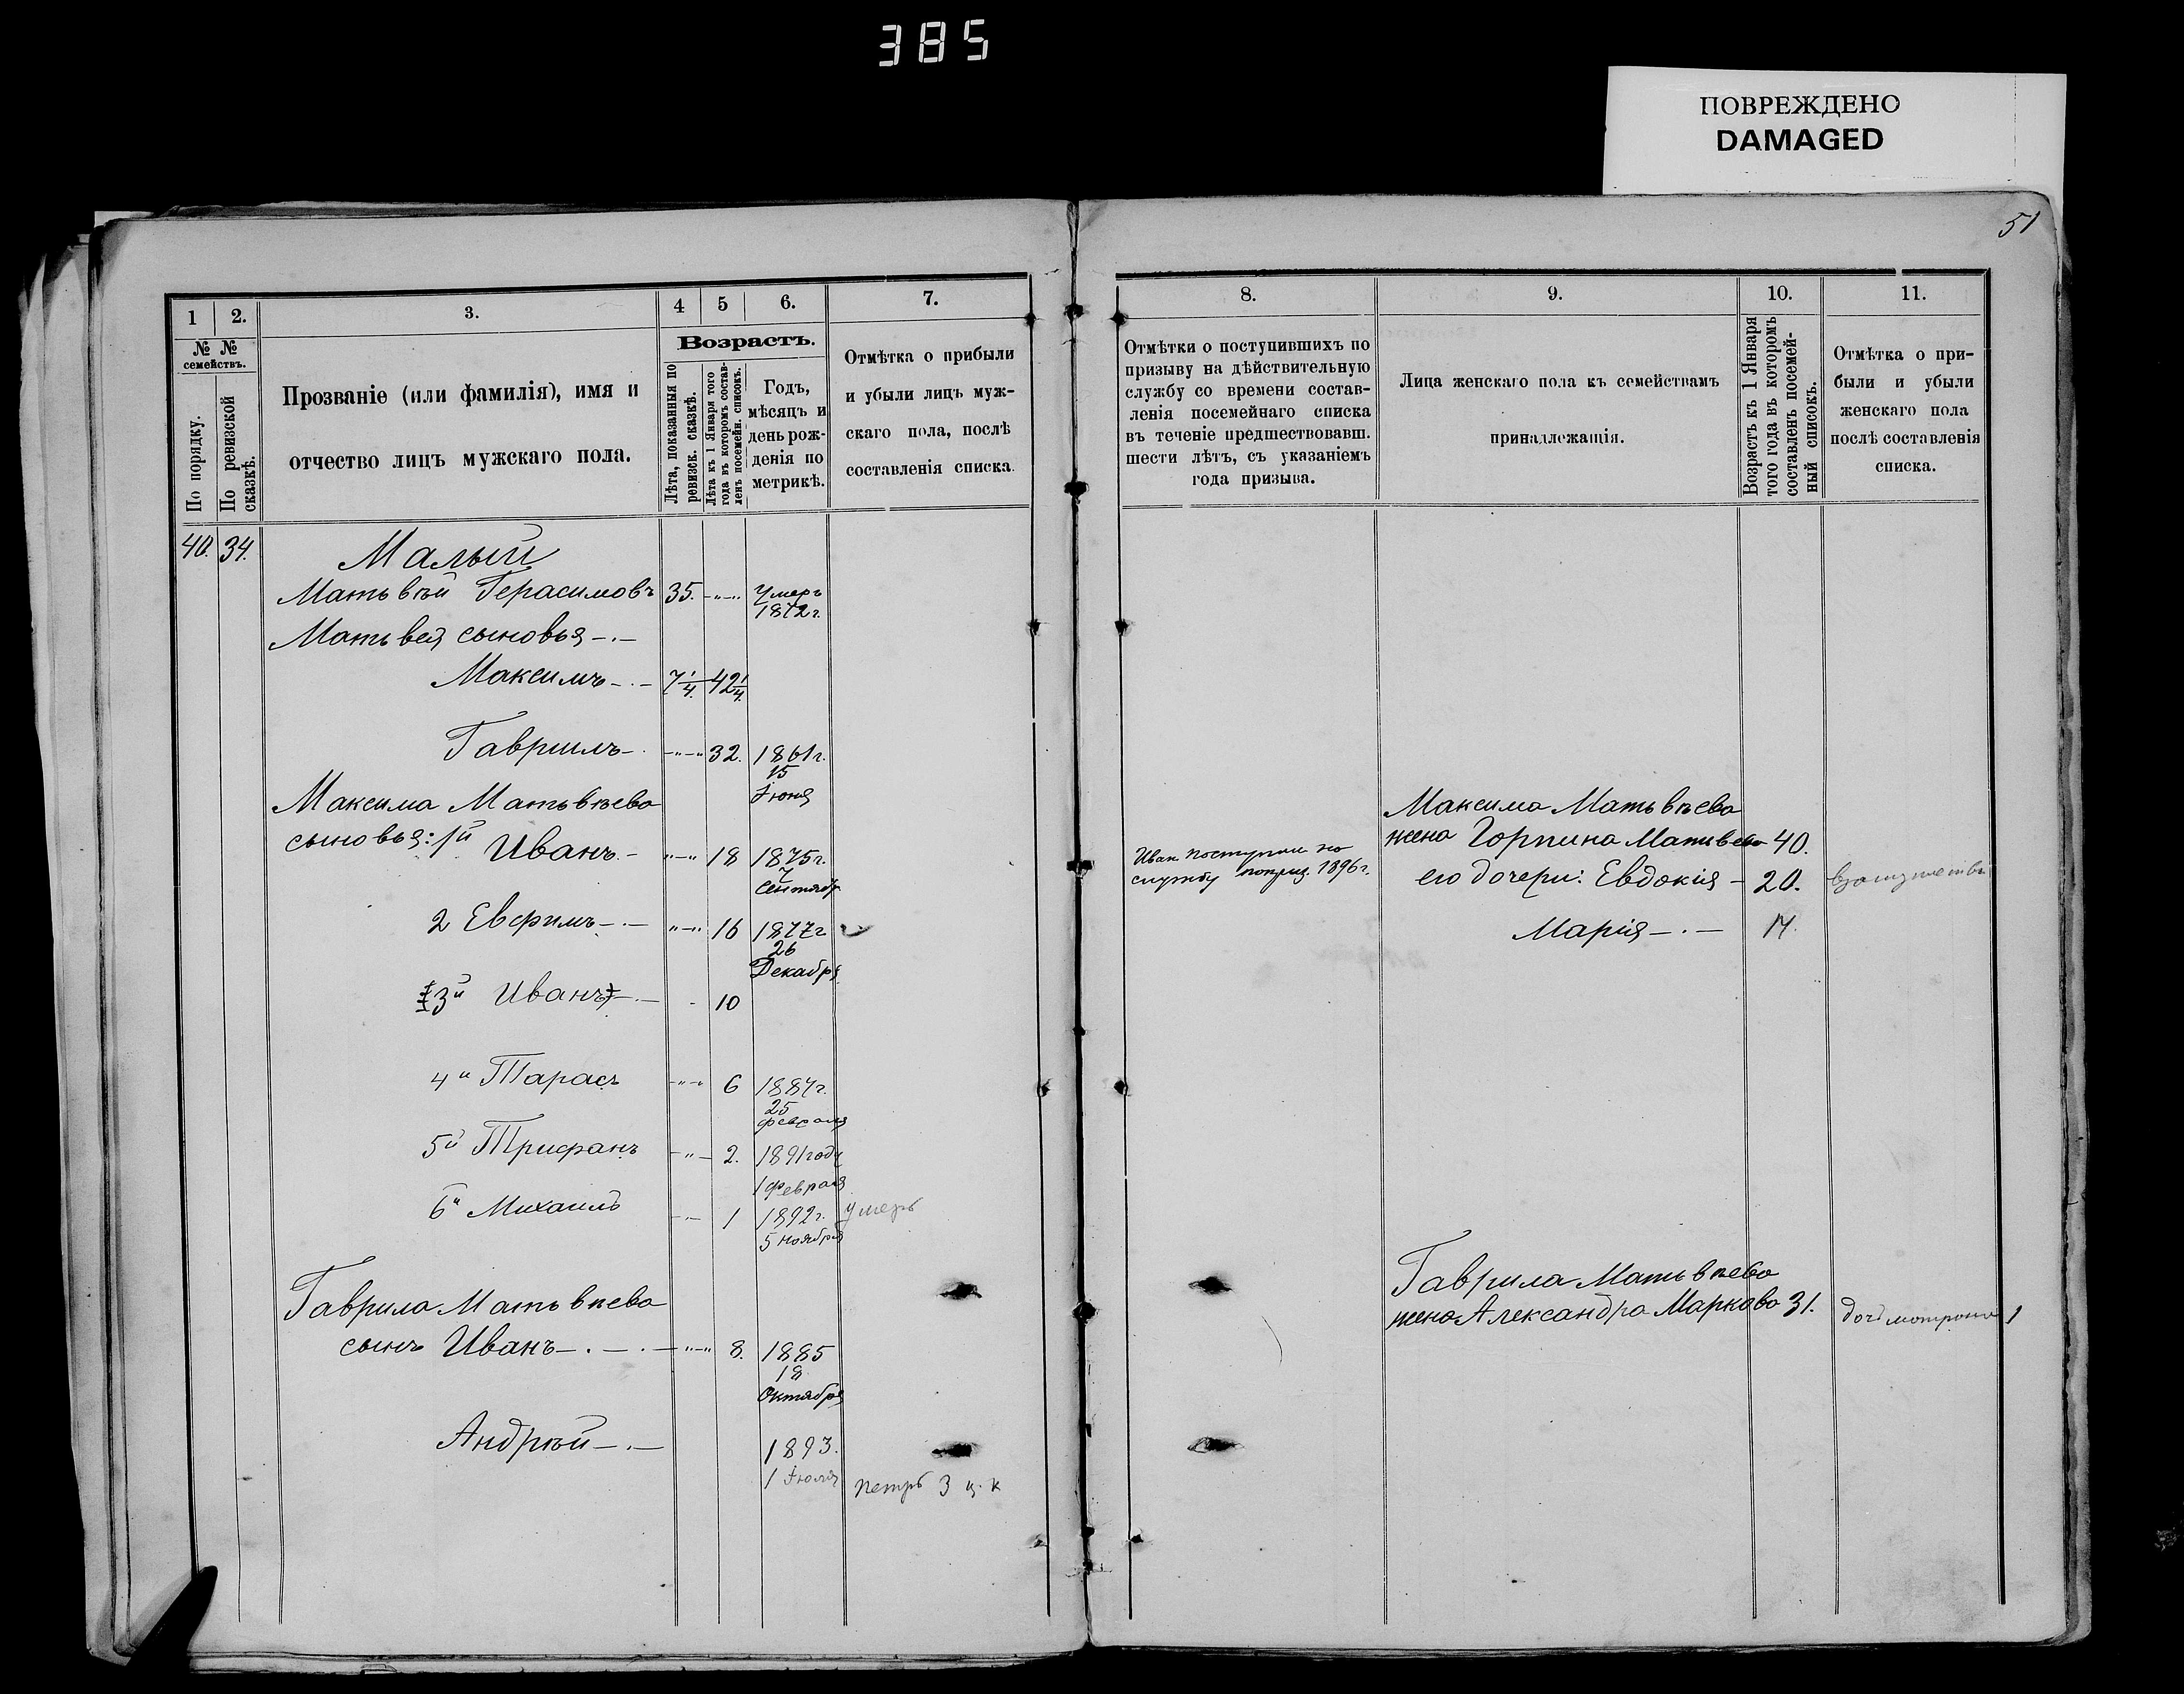 385
ПОВРЕЖДЕНО
DAMAGED
51
1
2.
3.
4
5
6.
7.
№ №
семействъ.
По порядку.
По ревизской
сказкѣ.
Прозваніе (или фамилія), имя и
отчество лицъ мужскаго пола.
Возрастъ.
Лѣта, показанныя по
ревизск. сказкѣ.
Лѣта къ 1 Января того
года въ которомъ состав-
ленъ посемейн. списокъ.
Годъ,
мѣсяцъ и
день рож-
денія по
метрикѣ.
Отмѣтка о прибыли
и убыли лицъ муж-
скаго пола, послѣ
составленія списка.
8.
9.
10.
11.
Отмѣтки о поступившихъ по
призыву на дѣйствительную
службу со времени состав-
ленія посемейнаго списка
въ теченіе предшествовавш.
шести лѣтъ, съ указаніемъ
года призыва.
Лица женскаго пола къ семействамъ
принадлежащія.
Возрастъ къ 1 Января
того года въ которомъ
составленъ посемей-
ный списокъ.
Отмѣтка о при-
были и убыли
женскаго пола
послѣ составленія
списка.
40. 34.
Малый
Матьвѣй Герасимовъ 35. -"-" Умеръ
1872 г.
Матьвея сыновья -.-
Максимъ -.- 7 1/4. 42 1/4.
Гаврилъ -. -"-" 32. 1861 г.
15
Іюня
Максима Матьвѣева
сыновья: 1й Иванъ. - "-" 18 1875 г.
7
Сентябр
2 Евфимъ -.- "-" 16 1877 г
26
Декабря
3й Иванъ -.- - 10
4й Тарасъ -"-" 6 1887 г.
25
февраля
5й Трифанъ -"- 2. 1891 году
1 Февраля
6й Михаилъ -.- 1 1892 г. умеръ
5 ноября
Гаврила Матьвѣева
сынъ Иванъ -.-.- -"-" 8. 1885
18
Октября
Андрѣй -.- 1893.
1 Іюля
Петръ 3
Иван поступил на
службу 1896 г.
Максима Матьвѣева
жена Горпина Матвеева 40.
его дочери: Евдокія - 20.
Марія -.- 14.
Гаврила Матьвѣева
жена Александра Маркова 31.
дочь мотрона 1